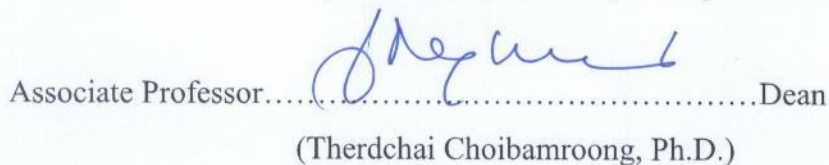 Associate Professor……………………………………………Dean
(Therdchai Choibamroong, Ph.D.)